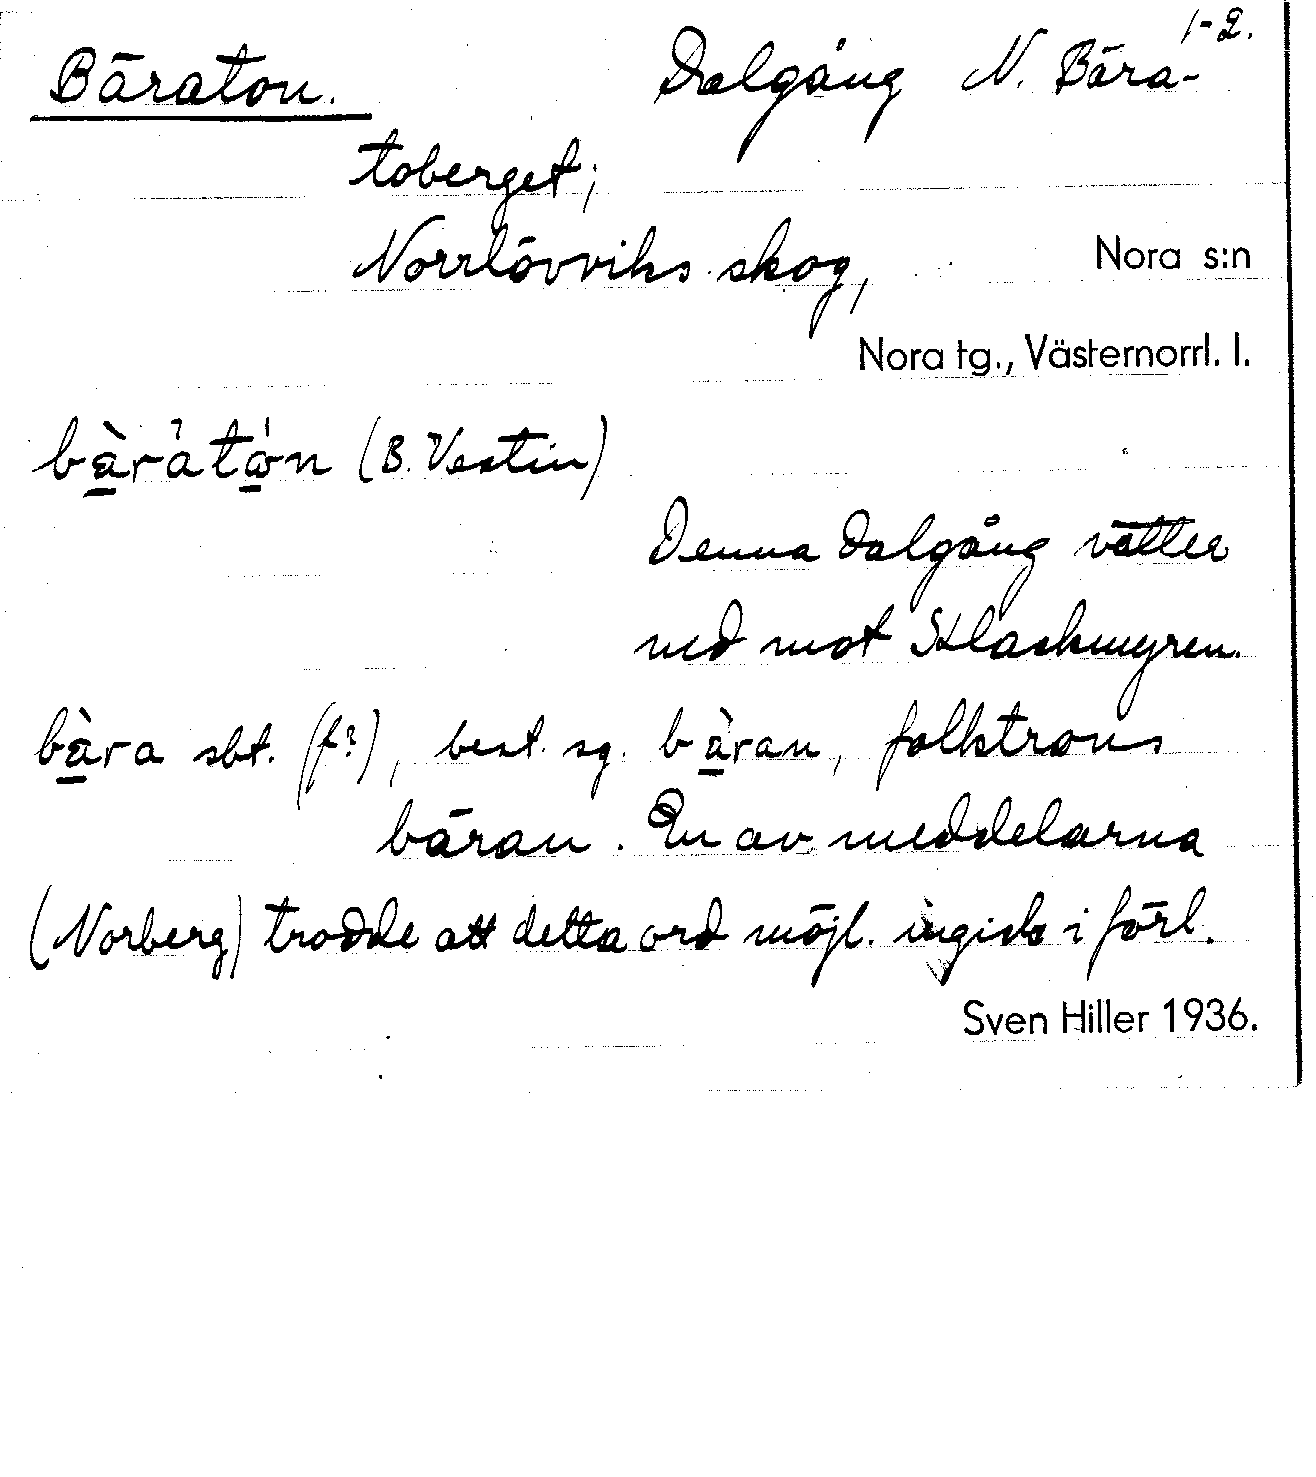 1-2.
Bäraton. Dalgång N. Bära-
toberget;
Norrlövviks skog, Nora s:n
Nora tg., Västernorrl. l.
(B. Vestin)
Denna dalgång vätter
ned mot Stlackmyren.
bära sbt. (f?), best. sg. bäran, folktrons
bäran. En av meddelarna
(Norberg) trodde att detta ord möjl. ingick i förl.
Sven Hiller 1936.